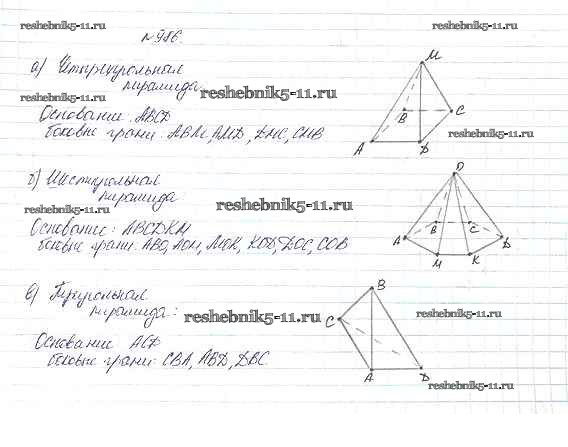 reshebnik5-11.ru
№986.
reshebnik5-11.ru
а) Четырёхугольная
пирамида:
reshebnik5-11.ru
reshebnik5-11.ru
Основание: ABCD
боковые грани: ABM, AMD, DMC, CMB
reshebnik5-11.ru
M
B
C
A
D
б) Шестиугольная
пирамида
reshebnik5-11.ru
reshebnik5-11.ru
Основание: ABCDKM
боковые грани: ABO, AOM, MOK, KOD, DOC, COB
O
B
C
A
D
M
K
в) Треугольная
пирамида:
reshebnik5-11.ru
reshebnik5-11.ru
Основание ACD
боковые грани: CBA, ABD, DBC
B
C
A
D
reshebnik5-11.ru